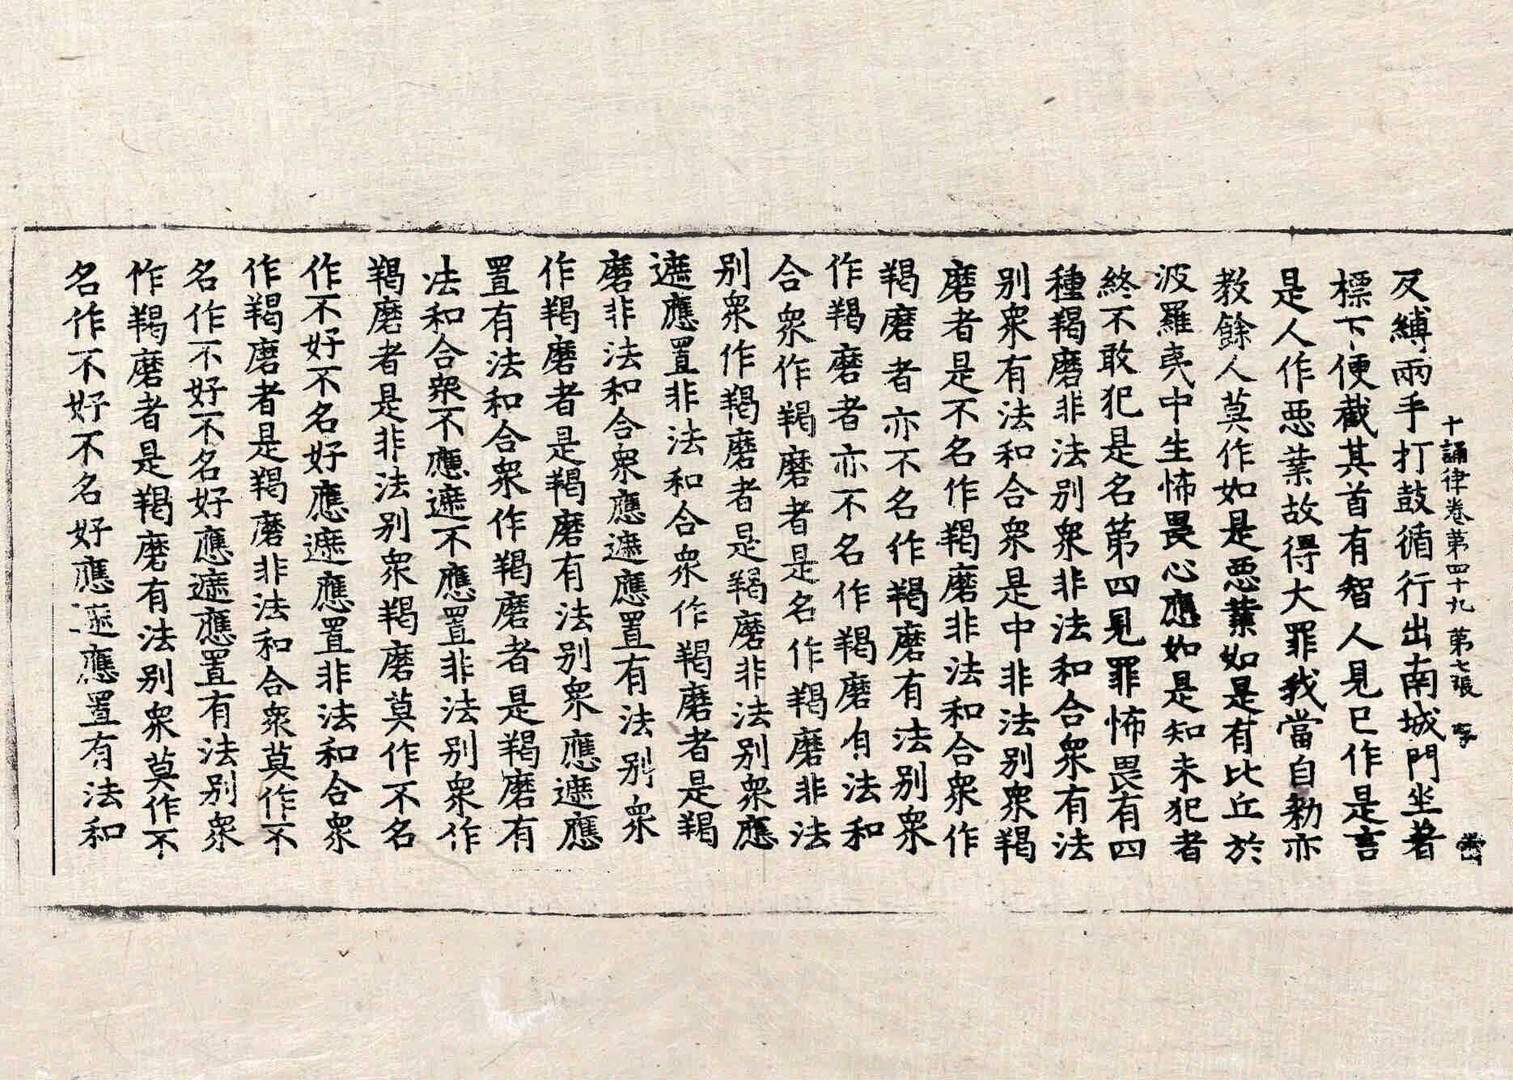 十誦律卷第四十九 第七張 存
反縛兩手打鼓循行出南城門坐著
標下便截其首有智人見已作是言
是人作惡業故得大罪我當自勑亦
教餘人莫作如是惡業如是有比丘於
波羅夷中生怖畏心應如是知未犯者
終不敢犯是名第四見罪怖畏有四
種羯磨非法別衆非法和合衆有法
別衆有法和合衆是中非法別衆羯
磨者是不名作羯磨非法和合衆作
羯磨者亦不名作羯磨有法別衆
作羯磨者亦不名作羯磨有法和
合衆作羯磨者是名作羯磨非法
別衆作羯磨者是羯磨非法別衆應
遮應置非法和合衆作羯磨者是羯
磨非法和合衆應遮應置有法別衆
作羯磨者是羯磨有法別衆應遮應
置有法和合衆作羯磨者是羯磨有
法和合衆不應遮不應置非法別衆作
羯磨者是非法別衆羯磨莫作不名
作不好不名好應遮應置非法和合衆
作羯磨者是羯磨非法和合衆莫作不
名作不好不名好應遮應置有法別衆
作羯磨者是羯磨有法別衆莫作不
名作不好不名好應遮應置有法和